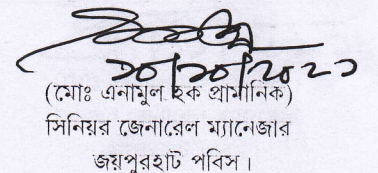 ১০/১০/২০২১
(মোঃ এনামুল হক প্রামানিক)
সিনিয়র জেনারেল ম্যানেজার
জয়পুরহাট পবিস।